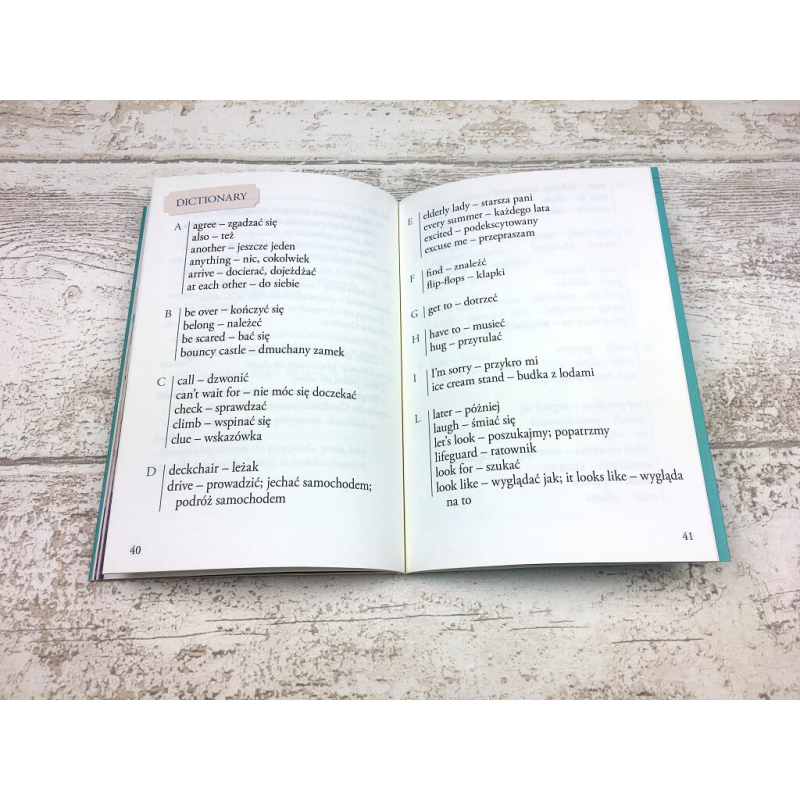 DICTIONARY
A
agree – zgadzać się
also – też
another – jeszcze jeden
anything – nic, cokolwiek
arrive – docierać, dojeżdżać
at each other – do siebie
B
be over – kończyć się
belong – należeć
be scared – bać się
bouncy castle – dmuchany zamek
C
call – dzwonić
can't wait for – nie móc się doczekać
check – sprawdzać
climb – wspinać się
clue – wskazówka
D
deckchair – leżak
drive – prowadzić; jechać samochodem;
podróż samochodem
40
E
elderly lady – starsza pani
every summer – każdego lata
excited – podekscytowany
excuse me – przepraszam
F
find – znaleźć
flip-flops – klapki
G
get to – dotrzeć
H
have to – musieć
hug – przytulać
I
I'm sorry – przykro mi
ice cream stand – budka z lodami
L
later – później
laugh – śmiać się
let's look – poszukajmy; popatrzmy
lifeguard – ratownik
look for – szukać
look like – wyglądać jak; it looks like – wygląda
na to
41